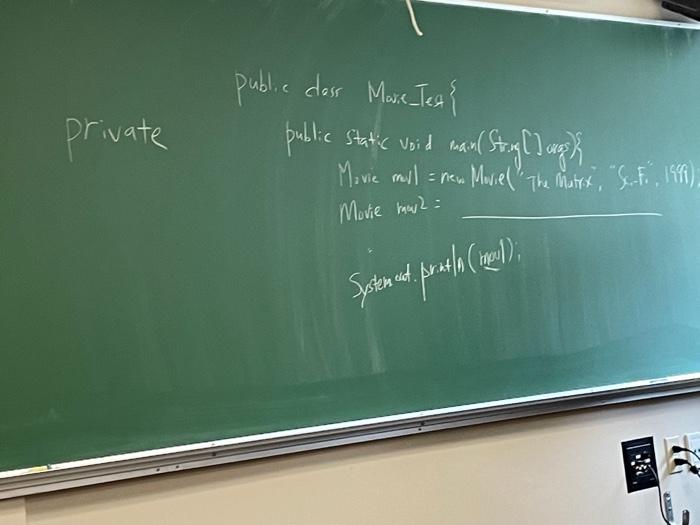 public class Movie_Test{
private
public static void main(String[] args){
Movie mov1 = new Movie("The Matrix", "Sci-Fi", 1999);
Movie mov2 =
System.out.println(mov1);